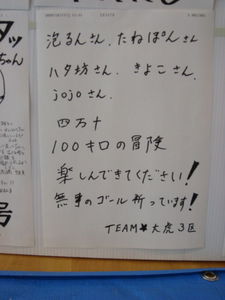 泡るんさん、たねぱんさん
ハタ坊さん、きよこさん、
jojoさん、
四万十
100キロの冒険
楽しんできてください!
無事のゴール祈っています!
TEAM★大虎3区
タッ
ちゃん
号